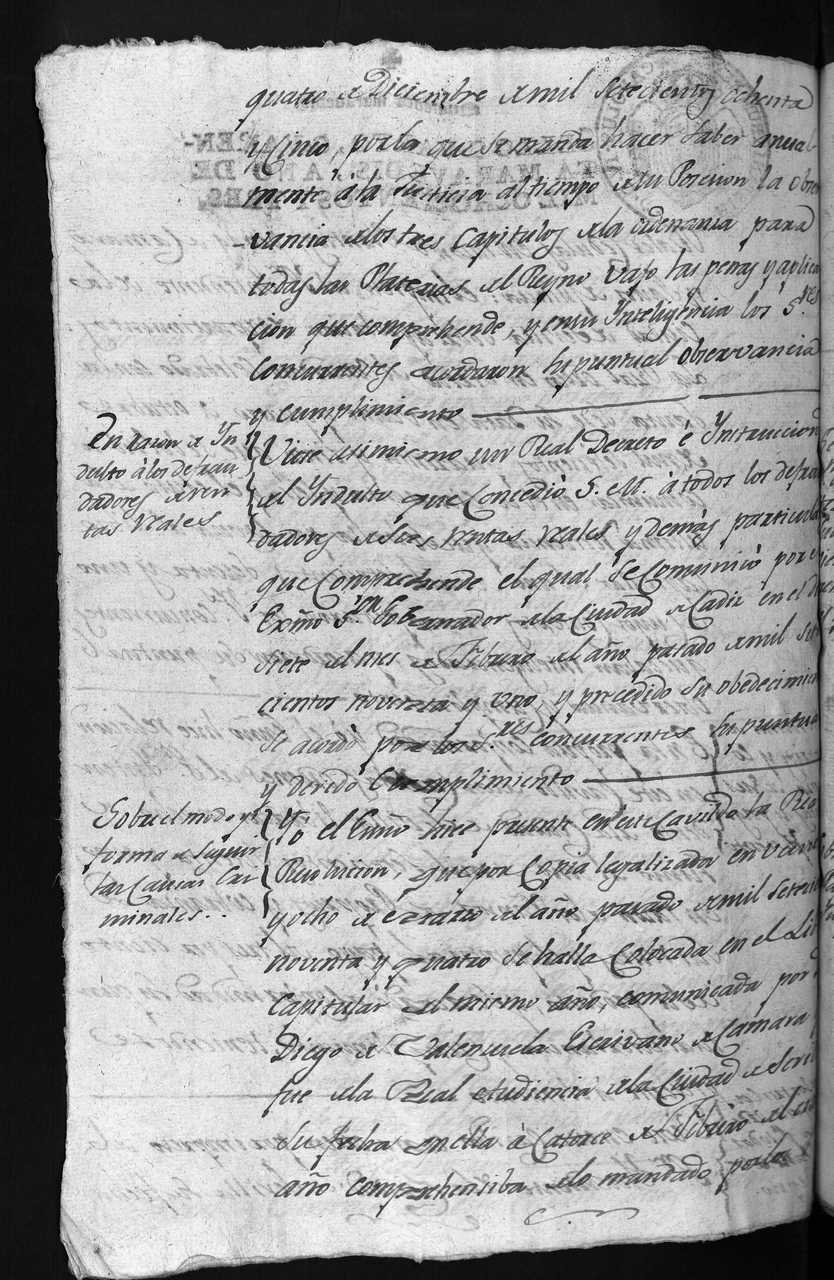 quatro de Diciembre de mil setecientos ochenta
y Cinco, por la que se manda hacer saber anual
mente á la Justicia al tiempo de su Posesion la obser
vancia de los tres Capitulos de la ordenanza para
todas las Platerias del Reyno vajo las penas y aplica
cion que comprehende, y en su Inteligencia los S.res
Concurrentes acordaron su puntual observancia
y cumplimiento
En razon de In
dulto á los defrau
dadores de ren
tas reales
Viose asimismo un Real Decreto é Instruccion
del Indulto que Concedió S. M. á todos los defrau
dadores de sus rentas reales y demás particula
que Comprehende el qual se Comunicó por el
Exmo S.or Gobernador de la Ciudad de Cadiz en el dia
siete del mes de Febrero del año pasado de mil sete
cientos noventa y uno, y precedido su obedecimien
se acordó por los S.res concurrentes su puntual
y devido Cumplimiento
Sobre el modo y
forma de seguir
las Causas Cri
minales..
Yo el Essno hice presente en este Cavildo la Rl
Resolucion, que por Copia legalizada en veinte
y ocho de Marzo del año pasado de mil setecien
noventa y quatro se halla Colocada en el Lib
Capitular del mismo año, comunicada por D
Diego de Valenzuela Escrivano de Camara q
fue de la Real Audiencia de la Ciudad de Sevill
su fecha en ella á Catorce de Febrero del
año comprehensiba de lo mandado por la